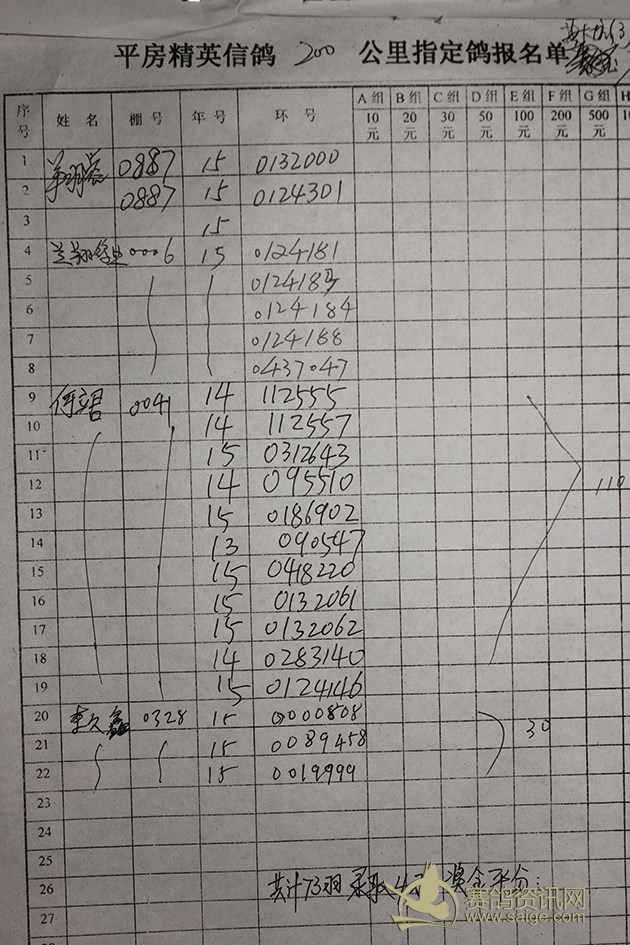 平房精英信鸽 200 公里指定鸽报名单
序号 姓名 棚号 年号 环号 A组 10元 B组 20元 C组 30元 D组 50元 E组 100元 F组 200元 G组 500元 H
1 0887 15 0132000
2 0887 15 0124301
3 15
4 0006 15 0124181
5
6 0124184
7 0124188
8 0437047
9 何立君 0041 14 112555
10 14 112557
11 15 0312643
12 14 095510 110
13 15 0186902
14 13 090547
15 15 0418220
16 15 0132061
17 15 0132062
18 14 0283140
19 15 0124146
20 李久鑫 0328 15 0000808
21 15 0089458 30
22 15 0019999
23
24
25
26 共计73羽 录取 4 奖金平分
27
赛鸽资讯网
www.saige.com